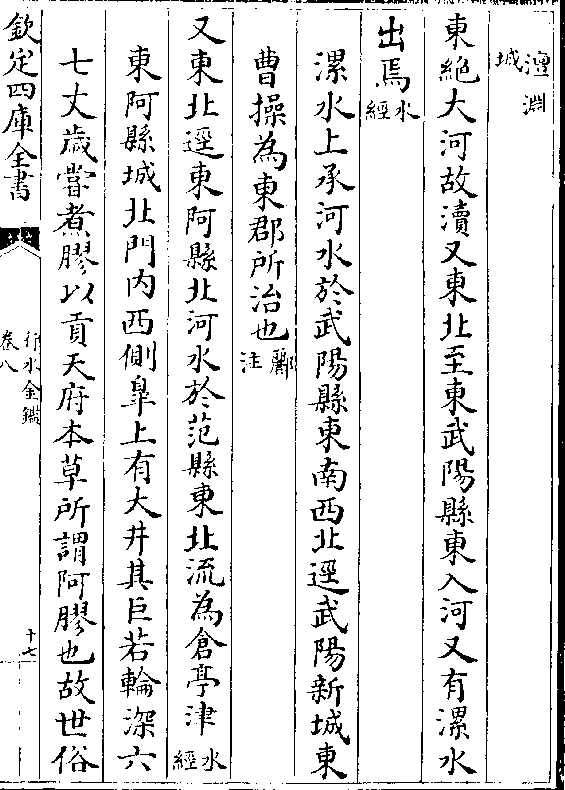 澶淵
城
東絶大河故瀆又東北至東武陽縣東入河又有漯水
出焉水
經
漯水上承河水於武陽縣東南西北逕武陽新城東
曹操為東郡所治也酈
注
又東北逕東阿縣北河水於范縣東北流為倉亭津水
經
東阿縣城北門内西側臯上有大井其巨若輪深六
七丈歲嘗煮膠以貢天府本草所謂阿膠也故世俗
欽定四庫全書
行水金鑑
卷八
十七